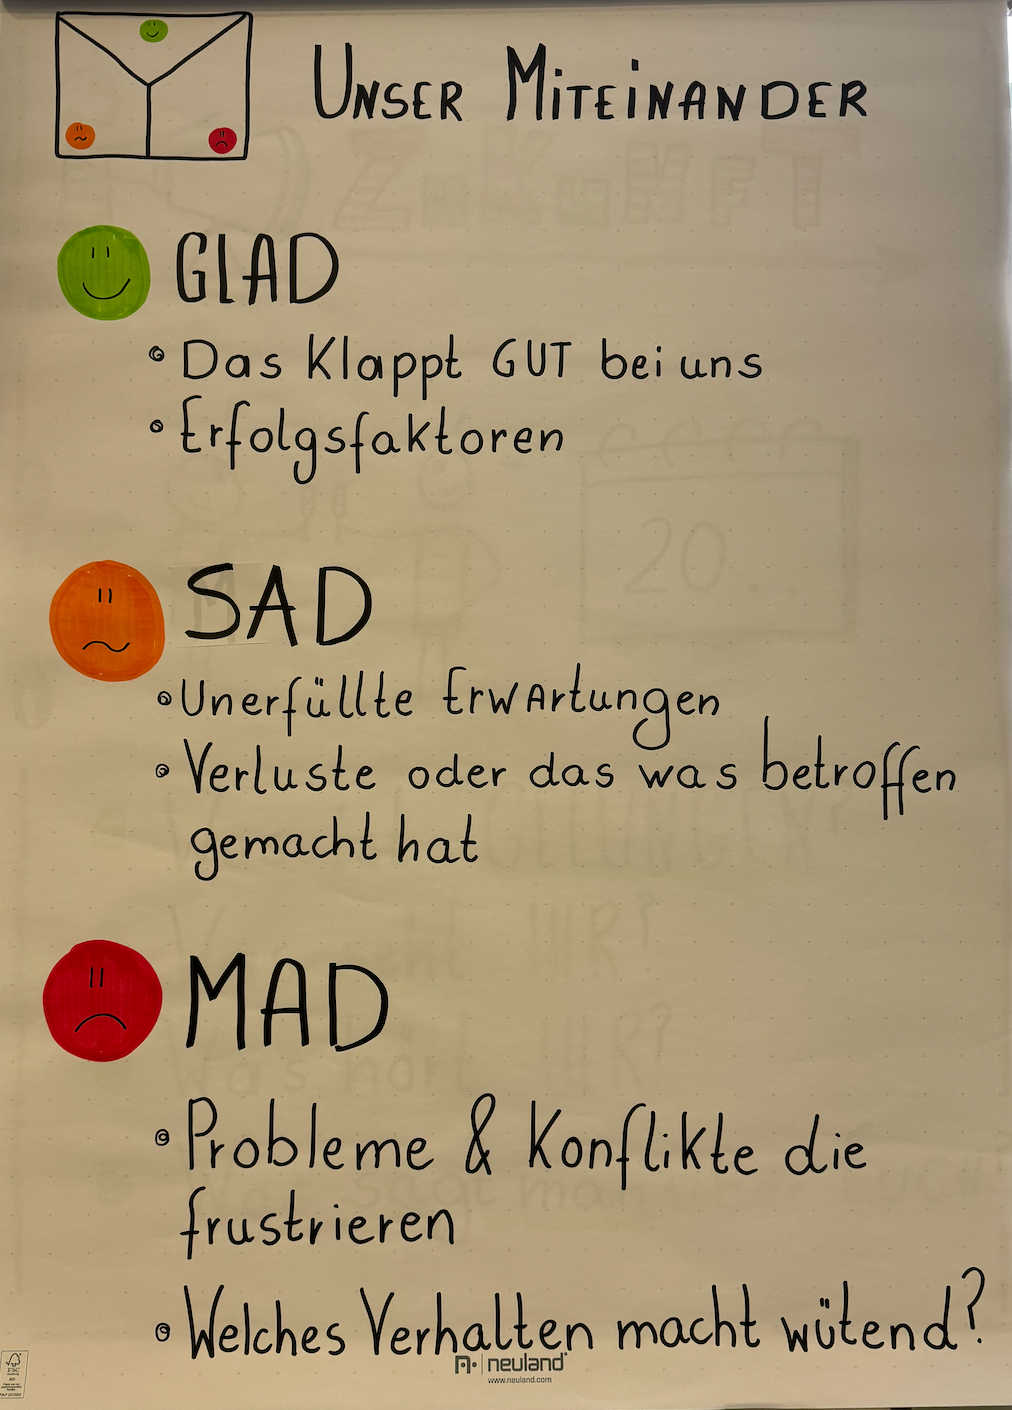 UNSER MITEINANDER
GLAD
Das Klappt GUT bei uns
Erfolgsfaktoren
SAD
Unerfüllte Erwartungen
Verluste oder das was betroffen
gemacht hat
MAD
Probleme & Konflikte die
frustrieren
Welches Verhalten macht wütend?
neuland
www.neuland.com
FSC